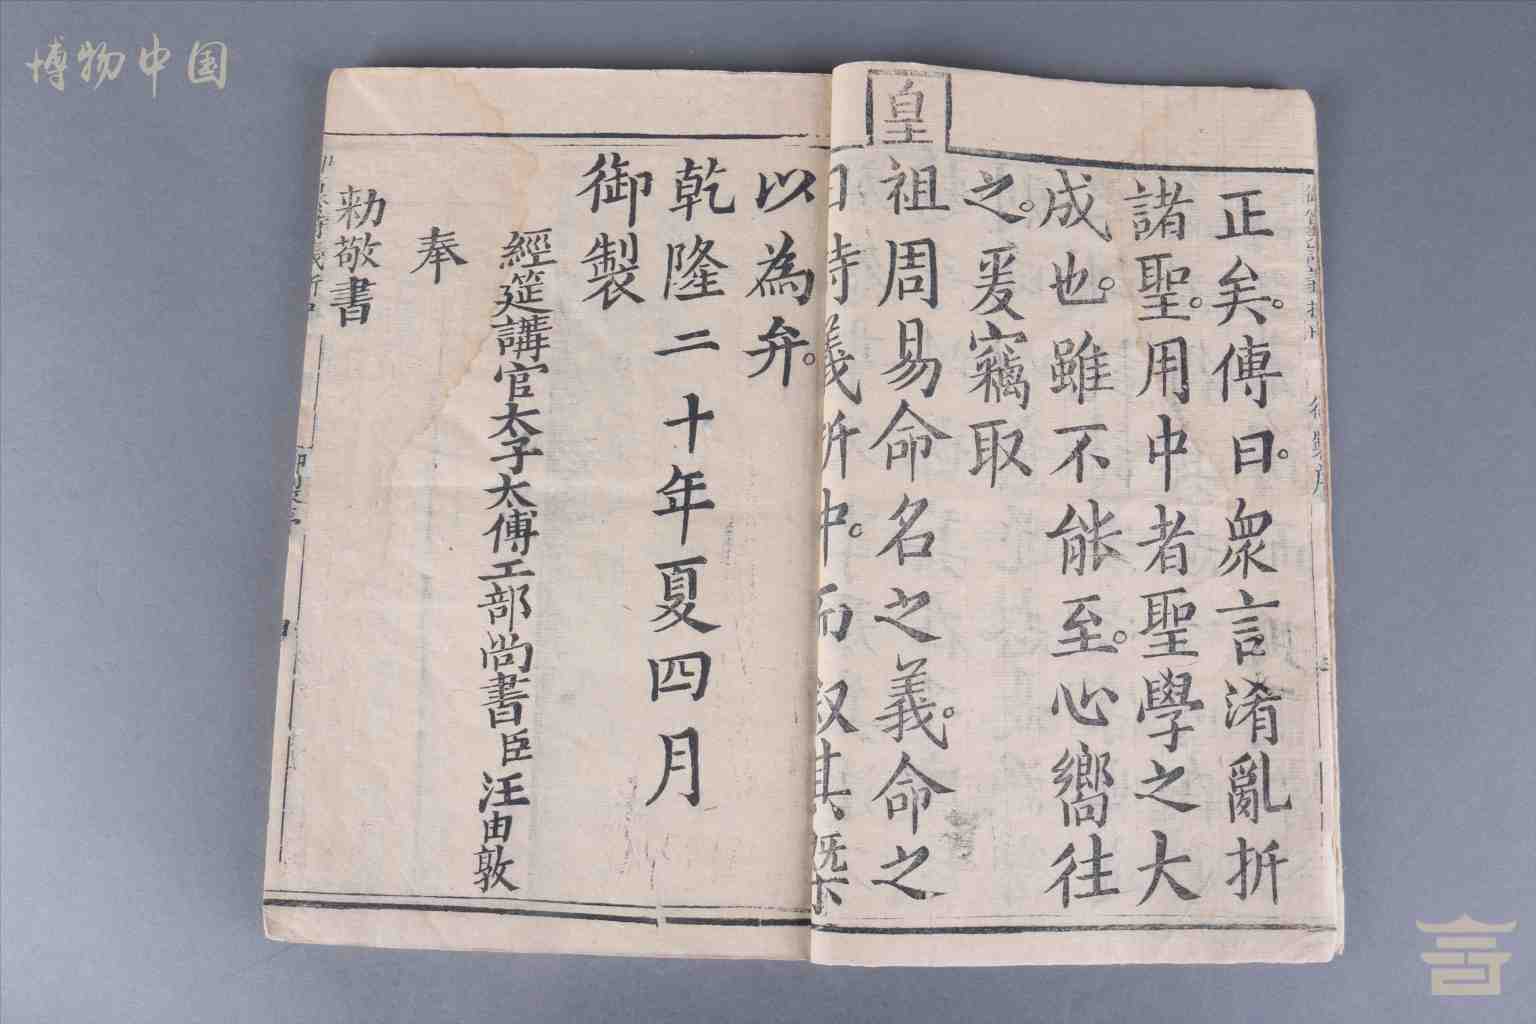 博物中国
正矣。傳曰。衆言淆亂折
諸聖。用中者聖學之大
成也。雖不能至。心嚮往
之。爰竊取
皇祖周易命名之義。命之
曰詩義折中。而敘其槩
以為弁。
乾隆二十年夏四月
御製
經筵講官太子太傅工部尚書臣汪由敦
奉
勅敬書